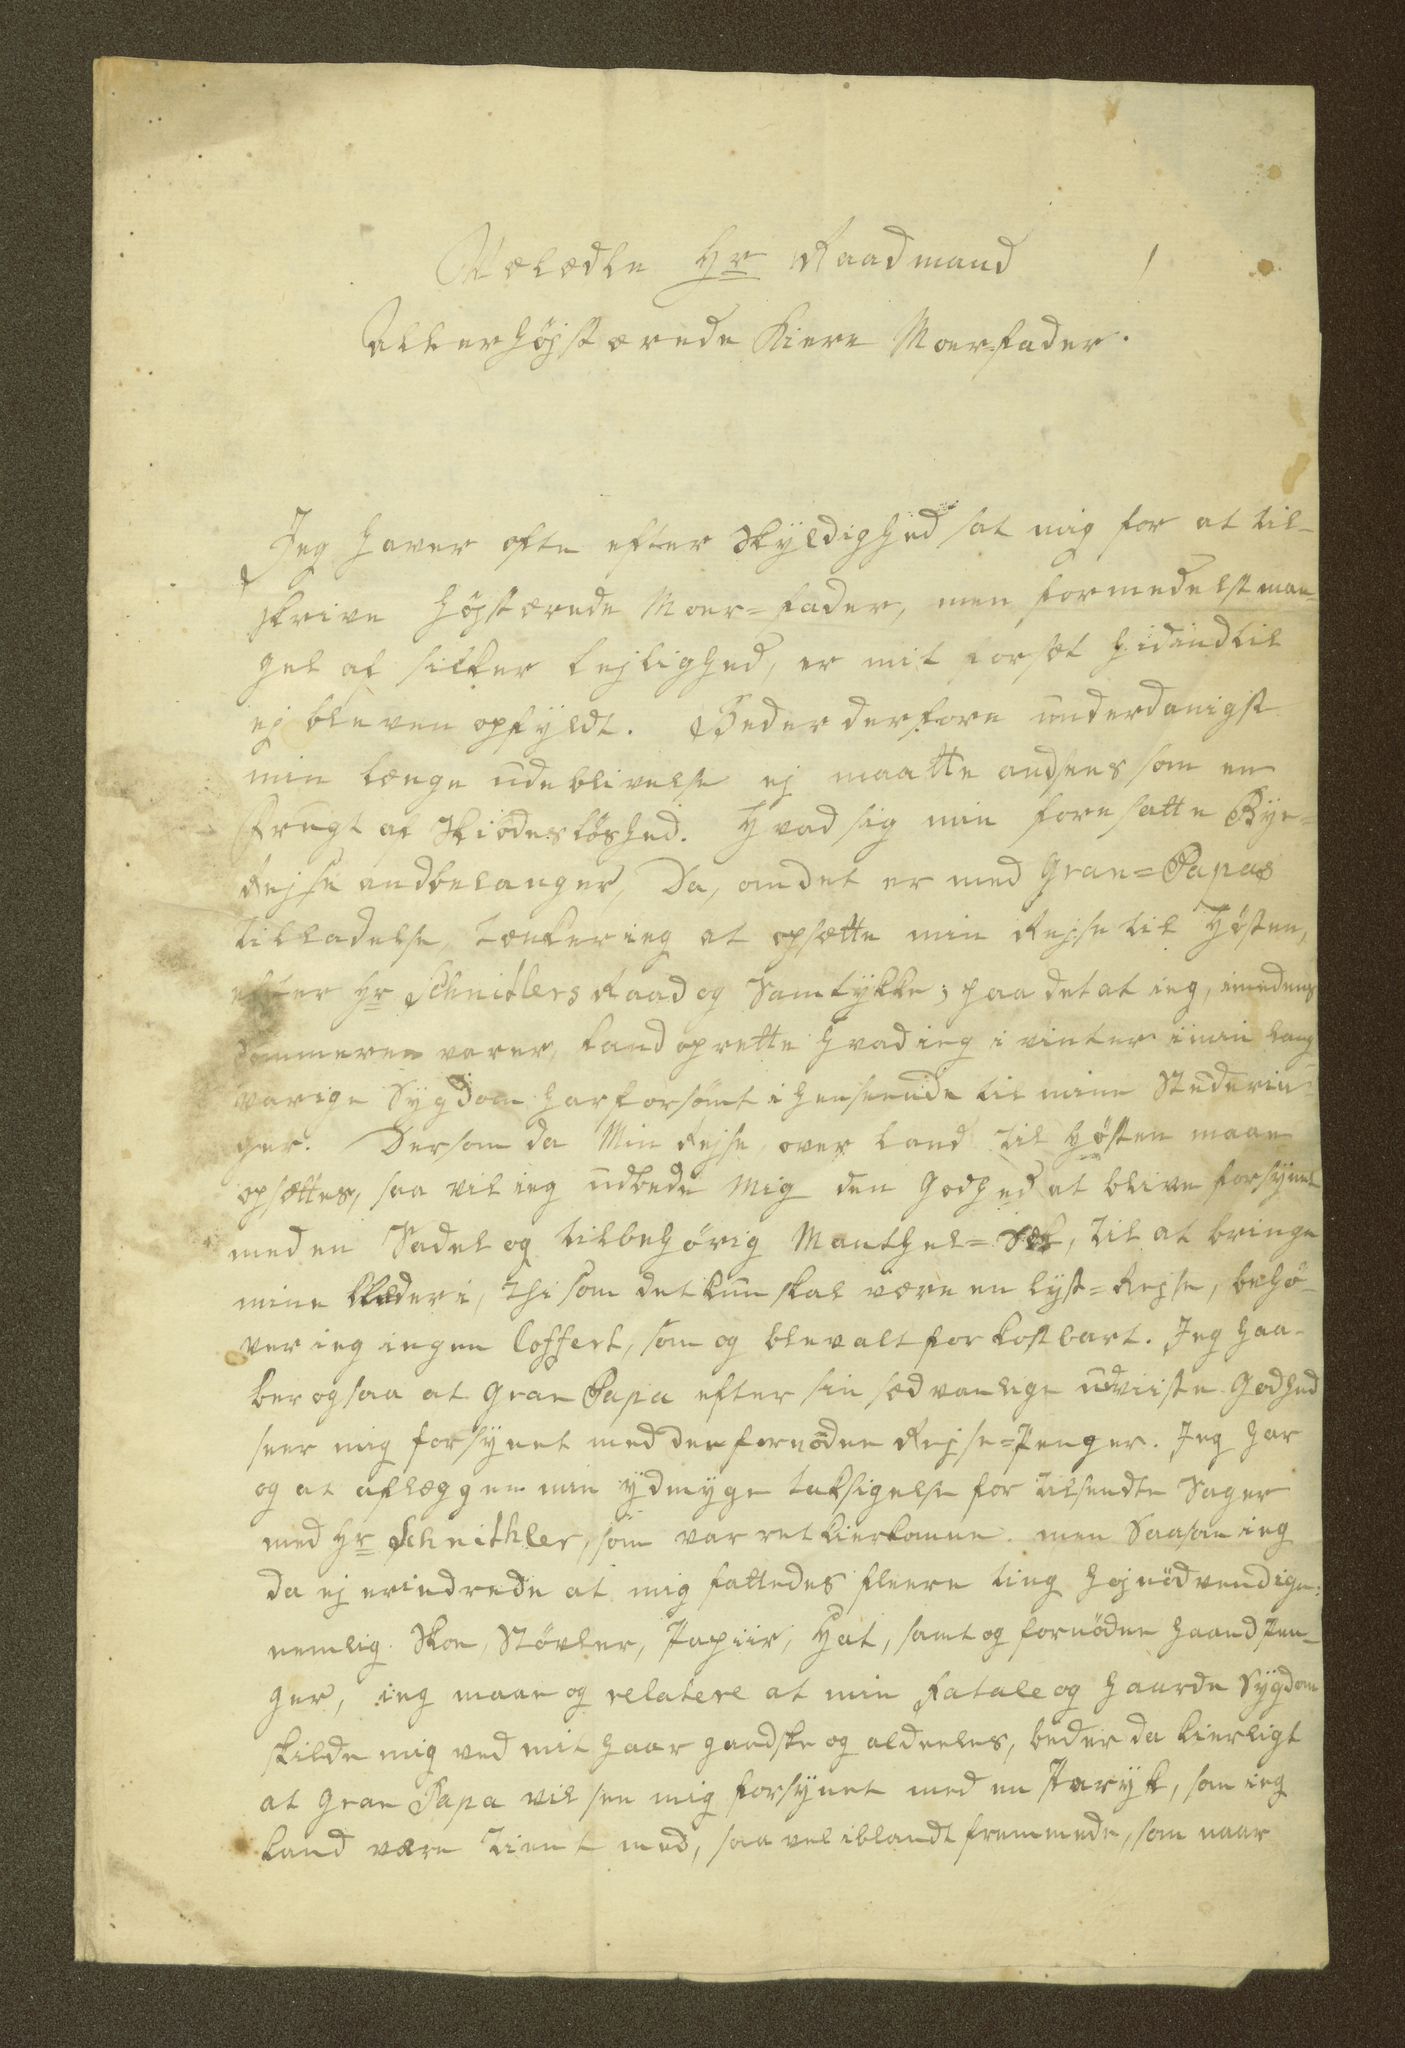 Velædle Hr Raadmand
Allerhöjstærede Kiere Moerfader.
Jeg haver ofte efter Skÿldighed sat mig for at til-
skrive höjstærede Moer=fader, men formedelst man-
gel af sikker Lejlighed, er mit forsæt hidindtil
ej bleven opfyldt. Beder derfore underdanigst
min længe udeblivelse ej maatte andsees som en
Frugt af Skiödeslöshed. Hvad sig min foresatte Bÿe-
Rejse andbelanger, Da, om det er med Gran=Papas
tilladelse, tænker ieg at opsætte min Rejse til Hösten,
efter Hr Schnitlers Raad og Samtÿkke; paa det at ieg, imedens
Sommeren varer, kand oprette hvad ieg i vinter i min lang
varige Sÿgdom har forsömt i henseende til mine Studerin-
ger. Dersom da Min Rejse over land til Hösten maae
opsættes, saa vil ieg udbede Mig den Godhed at blive forsÿnet
med en Sadel og tilbehörig Manthel=Sæk, til at bringe
mine Klæder i, thi som det kun skal være en lyst=Rejse, behö-
ver ieg ingen Coffert, som og blev alt for kostbart. Jeg haa-
ber og saa at Gran Papa efter sin sædvanlige udviiste Godhed
seer mig forsÿnet med de fornödne Rejse=Penger. Jeg har
og at aflægge min ÿdmyge taksigelse for tilsendte Sager
med Hr Schnithler, som var ret kierkomne. men Saasom ieg
da ej erindrede at mig fattedes fleere ting hojnödvendige:
nemlig Skoe, Stövler, Papiir, Hat, samt og fornödne haand Pen-
ger, ieg maae og relatere at min Fatale og haarde Sÿgdom
skilde mig ved mit haar gandske og aldeeles, beder da kierligt
at Gran Papa vil see mig forsÿnet med en Parÿk, som ieg
kand være tient med, saa vel iblandt fremmede, som naar